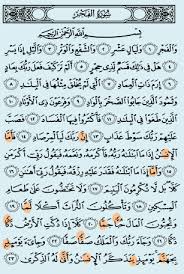 سُورَةُ الْفَجْرِ
بِسْمِ اللَّهِ الرَّحْمَٰنِ الرَّحِيمِ
وَالْفَجْرِ ١ وَلَيَالٍ عَشْرٍ ٢ وَالشَّفْعِ وَالْوَتْرِ ٣ وَاللَّيْلِ إِذَا يَسْرِ
٤ هَلْ فِي ذَٰلِكَ قَسَمٌ لِذِي حِجْرٍ ٥ أَلَمْ تَرَ كَيْفَ فَعَلَ رَبُّكَ
بِعَادٍ ٦ إِرَمَ ذَاتِ الْعِمَادِ ٧ الَّتِي لَمْ يُخْلَقْ مِثْلُهَا فِي الْبِلَٰدِ
٨ وَثَمُودَ الَّذِينَ جَابُوا الصَّخْرَ بِالْوَادِ ٩ وَفِرْعَوْنَ ذِي الْأَوْتَادِ
١٠ الَّذِينَ طَغَوْا فِي الْبِلَٰدِ ١١ فَأَكْثَرُوا فِيهَا الْفَسَادَ ١٢ فَصَبَّ
عَلَيْهِمْ رَبُّكَ سَوْطَ عَذَابٍ ١٣ إِنَّ رَبَّكَ لَبِالْمِرْصَادِ ١٤ فَأَمَّا
الْإِنسَٰنُ إِذَا مَا ابْتَلَىٰهُ رَبُّهُ فَأَكْرَمَهُ وَنَعَّمَهُ فَيَقُولُ رَبِّي أَكْرَمَنِ
١٥ وَأَمَّا إِذَا مَا ابْتَلَىٰهُ فَقَدَرَ عَلَيْهِ رِزْقَهُ فَيَقُولُ رَبِّي أَهَٰنَنِ
١٦ كَلَّا بَل لَّا تُكْرِمُونَ الْيَتِيمَ ١٧ وَلَا تَحَٰضُّونَ عَلَىٰ طَعَامِ
الْمِسْكِينِ ١٨ وَتَأْكُلُونَ التُّرَاثَ أَكْلًا لَّمًّا
١٩ وَتُحِبُّونَ الْمَالَ حُبًّا جَمًّا ٢٠ كَلَّا إِذَا دُكَّتِ الْأَرْضُ دَكًّا
دَكًّا ٢١ وَجَاءَ رَبُّكَ وَالْمَلَكُ صَفًّا صَفًّا ٢٢ وَجِاْيءَ يَوْمَئِذٍ
بِجَهَنَّمَ يَوْمَئِذٍ يَتَذَكَّرُ الْإِنسَٰنُ وَأَنَّىٰ لَهُ الذِّكْرَىٰ ٢٣